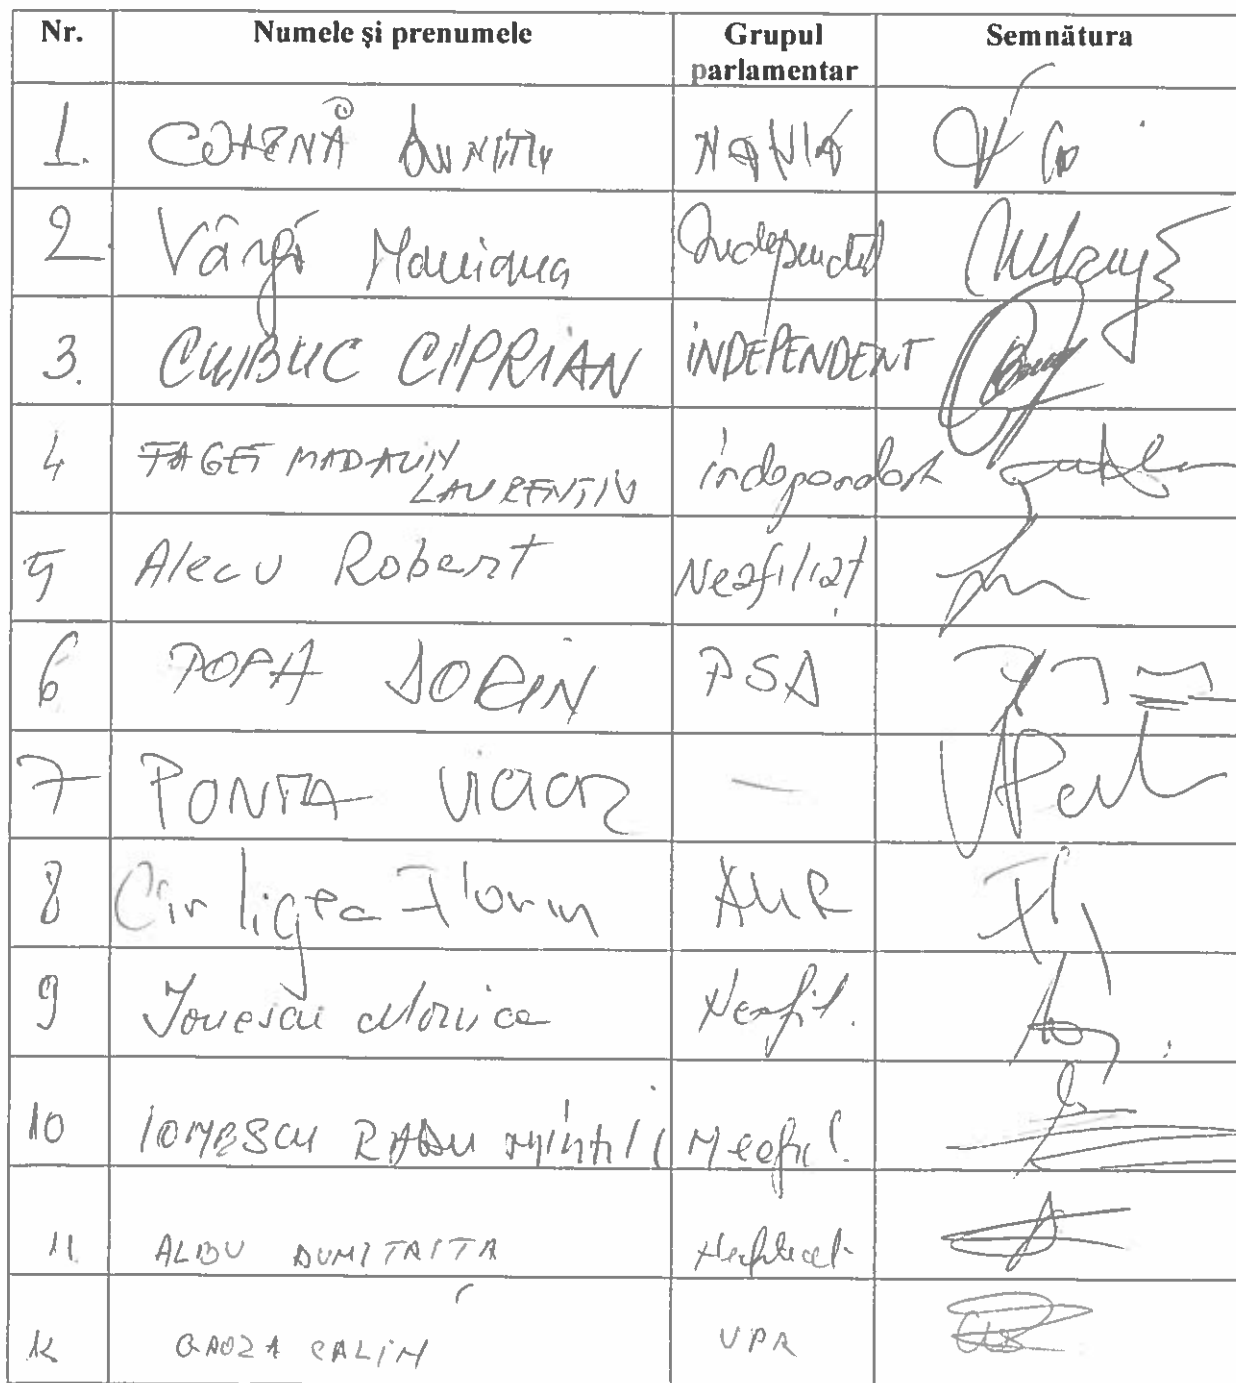 Nr. Numele și prenumele Grupul parlamentar Semnătura
1. COARNĂ DUMITRU
2. Vârgă Mariana Independent
3. CIUBUC CIPRIAN INDEPENDENT
4 FAGET MADALIN LAURENTIU independent
5 Alecu Robert Neafiliat
6 POPA SORIN PSD
7 PONTA VICTOR —
8 Cirligea Florin AUR
9 Ionescu Monica Neafil.
10 IONESCU RADU Neafil.
11. ALBU DUMITRITA Neafiliat
12 CALIN UPR